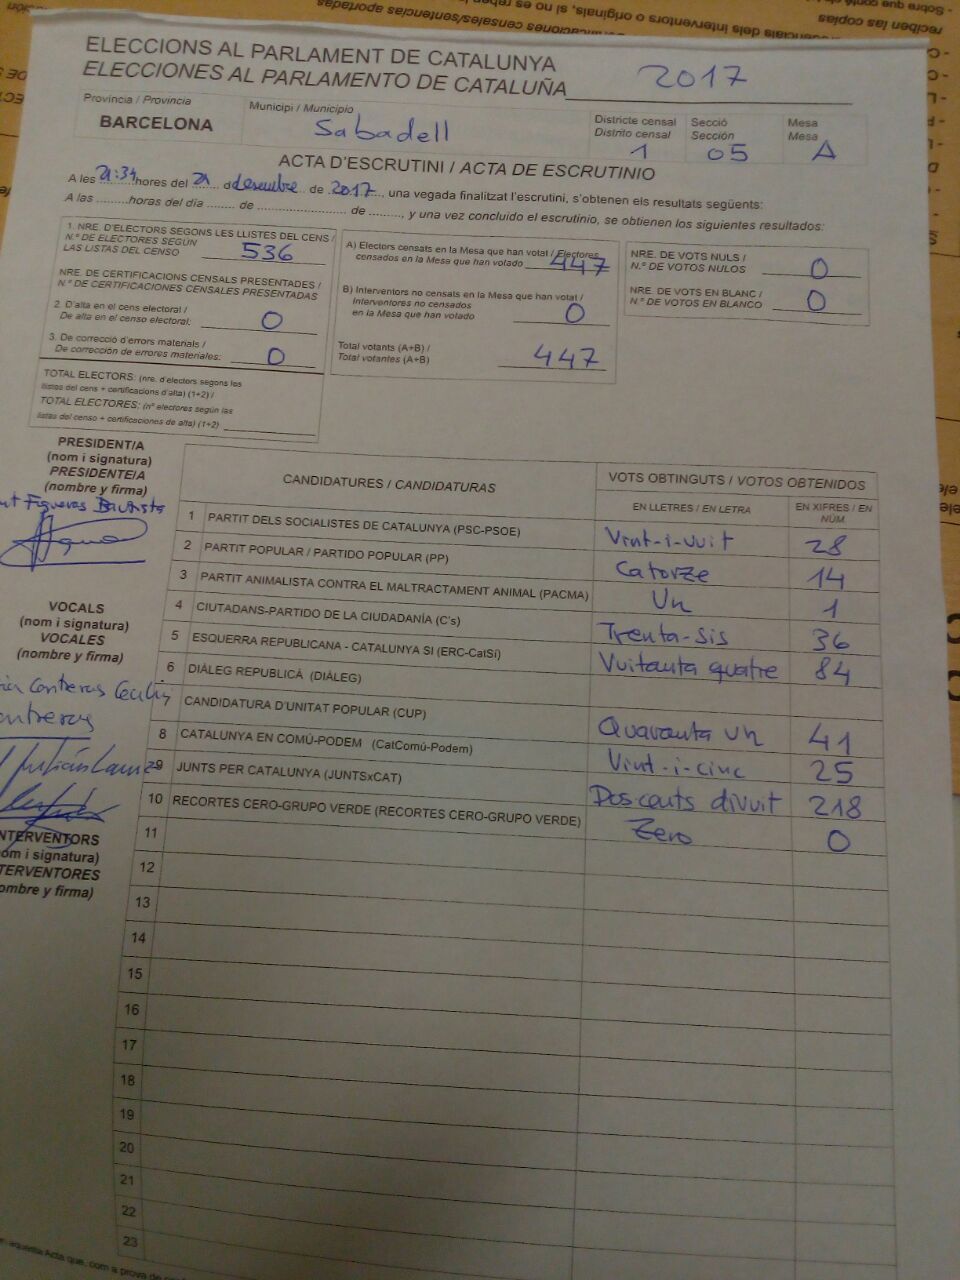 ELECCIONS AL PARLAMENT DE CATALUNYA
ELECCIONES AL PARLAMENTO DE CATALUÑA 2017
Província / Provincia
BARCELONA
Municipi / Municipio
Sabadell
Districte censal
Distrito censal
1
Secció
Sección
05
Mesa
Mesa
A
ACTA D'ESCRUTINI / ACTA DE ESCRUTINIO
A les 21:34 hores del 21 d desembre de 2017, una vegada finalitzat l'escrutini, s'obtenen els resultats següents:
A las .........horas del día ........ de ........................ de ........., y una vez concluido el escrutinio, se obtienen los siguientes resultados:
1. NRE. D'ELECTORS SEGONS LES LLISTES DEL CENS /
N.º DE ELECTORES SEGÚN
LAS LISTAS DEL CENSO 536
NRE. DE CERTIFICACIONS CENSALS PRESENTADES /
N.º DE CERTIFICACIONES CENSALES PRESENTADAS
2. D'alta en el cens electoral /
De alta en el censo electoral: 0
3. De correcció d'errors materials /
De corrección de errores materiales: 0
TOTAL ELECTORS: (nre. d'electors segons les
llistes del cens + certificacions d'alta) (1+2) /
TOTAL ELECTORES: (nº electores según las
listas del censo + certificaciones de alta) (1+2)
A) Electors censats en la Mesa que han votat / Electores
censados en la Mesa que han votado 447
B) Interventors no censats en la Mesa que han votat /
Interventores no censados
en la Mesa que han votado 0
Total votants (A+B) /
Total votantes (A+B) 447
NRE. DE VOTS NULS /
N.º DE VOTOS NULOS 0
NRE. DE VOTS EN BLANC /
N.º DE VOTOS EN BLANCO 0
PRESIDENT/A
(nom i signatura)
PRESIDENTE/A
(nombre y firma)
Figueras Bautista
VOCALS
(nom i signatura)
VOCALES
(nombre y firma)
Contreras
Julián
INTERVENTORS
(nom i signatura)
INTERVENTORES
(nombre y firma)
CANDIDATURES / CANDIDATURAS
VOTS OBTINGUTS / VOTOS OBTENIDOS
EN LLETRES / EN LETRA
EN XIFRES / EN NÚM.
1 PARTIT DELS SOCIALISTES DE CATALUNYA (PSC-PSOE) Vint-i-vuit 28
2 PARTIT POPULAR / PARTIDO POPULAR (PP) Catorze 14
3 PARTIT ANIMALISTA CONTRA EL MALTRACTAMENT ANIMAL (PACMA) Un 1
4 CIUTADANS-PARTIDO DE LA CIUDADANÍA (C's) Trenta-sis 36
5 ESQUERRA REPUBLICANA - CATALUNYA SI (ERC-CatSí) Vuitanta quatre 84
6 DIÀLEG REPUBLICÀ (DIÀLEG)
7 CANDIDATURA D'UNITAT POPULAR (CUP) Quaranta un 41
8 CATALUNYA EN COMÚ-PODEM (CatComú-Podem) Vint-i-cinc 25
9 JUNTS PER CATALUNYA (JUNTSxCAT) Dos-cents divuit 218
10 RECORTES CERO-GRUPO VERDE (RECORTES CERO-GRUPO VERDE) Zero 0
11
12
13
14
15
16
17
18
19
20
21
22
23